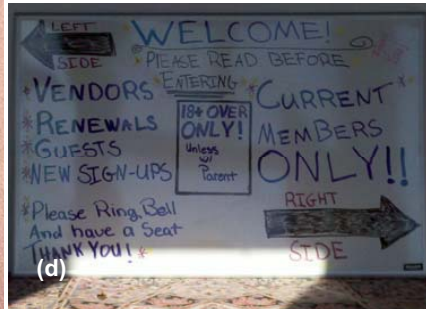 WELCOME!
PLEASE READ BEFORE
ENTERING
LEFT
SIDE
*VENDORS
*RENEWALS
*GUESTS
*NEW SIGN-UPS
*Please Ring Bell
And have a Seat
THANK YOU! *
18+ OVER
ONLY!
Unless
w/
Parent
*CURRENT*
MEMBERS
ONLY!!
RIGHT
SIDE
(d)